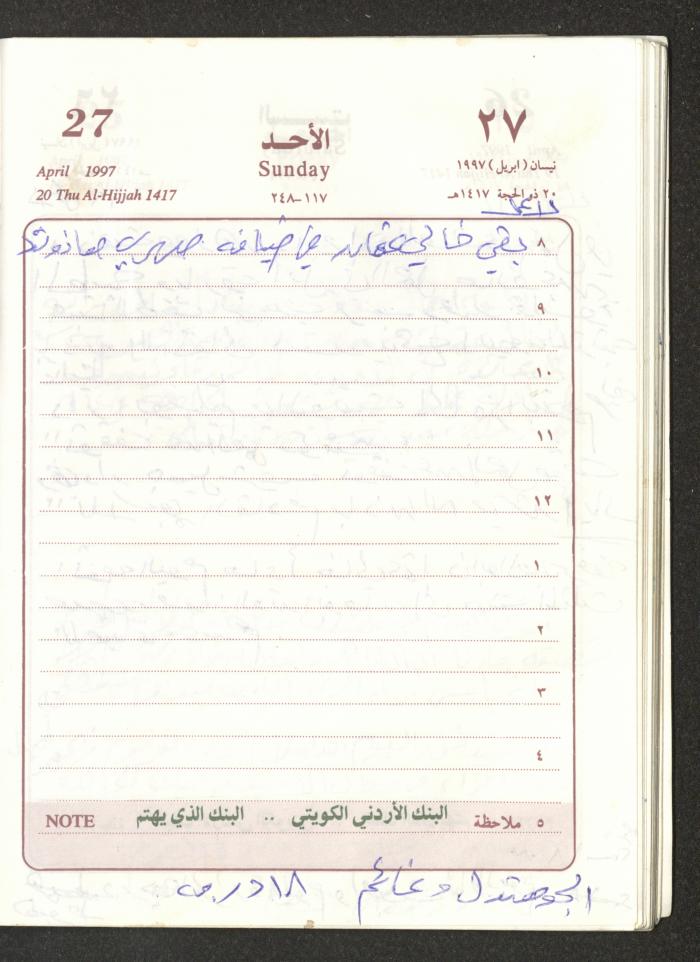 27
الأحد
٢٧
April 1997
Sunday
نيسان (ابريل) ١٩٩٧
20 Thu Al-Hijjah 1417
١١٧-٢٤٨
٢٠ ذو الحجة ١٤١٧هـ
٨ بقي خالي في ضيافة صهري
٩
١٠
١١
١٢
١
٢
٣
٤
٥ ملاحظة البنك الأردني الكويتي .. البنك الذي يهتم NOTE
الجو معتدل وغائم ١٨ درجة